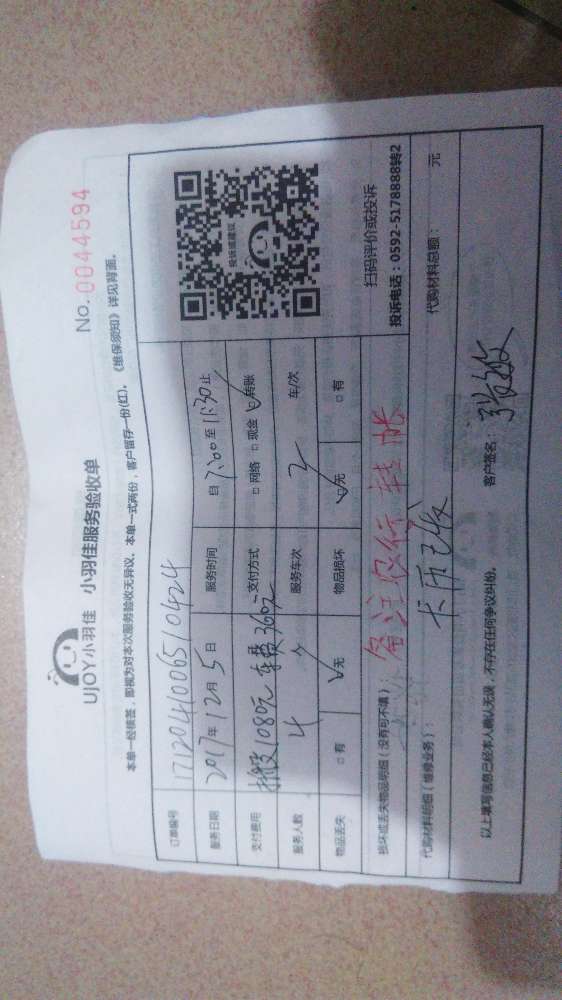 UJOY小羽佳 小羽佳服务验收单
No.0044594
本单一经核签，即视为对本次服务验收无异议。本单一式两份，客户留存一份(红)。《维保须知》详见背面。
订单编号 1712041006510424
服务日期 2017年12月5日 服务时间 自 7:00 至 11:30 止
支付费用 搬投1080元 车费360元 支付方式 □网络 □现金 ☑转账
服务人数 4 服务车次 2 车/次
物品丢失 □有 ☑无 物品损坏 ☑无 □有
投诉或建议
扫码评价或投诉
投诉电话：0592-5178888转2
损坏或丢失物品明细（没有可不填）： 备注农行转帐
代购材料明细（维修业务）： 代购材料总额： 元
以上填写信息已经本人确认无误，不存在任何争议纠纷。 客户签名：